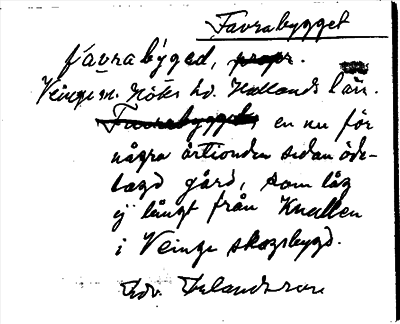 Favrabygget
favrabýged, propr.
Veinge sn. Höks hd. Hallands län.
Favrabygget en nu för
några årtionden sedan öde-
lagd gård, som låg
ej långt från Knallen
i Veinge skogsbygd.
Edv. Erlandsson